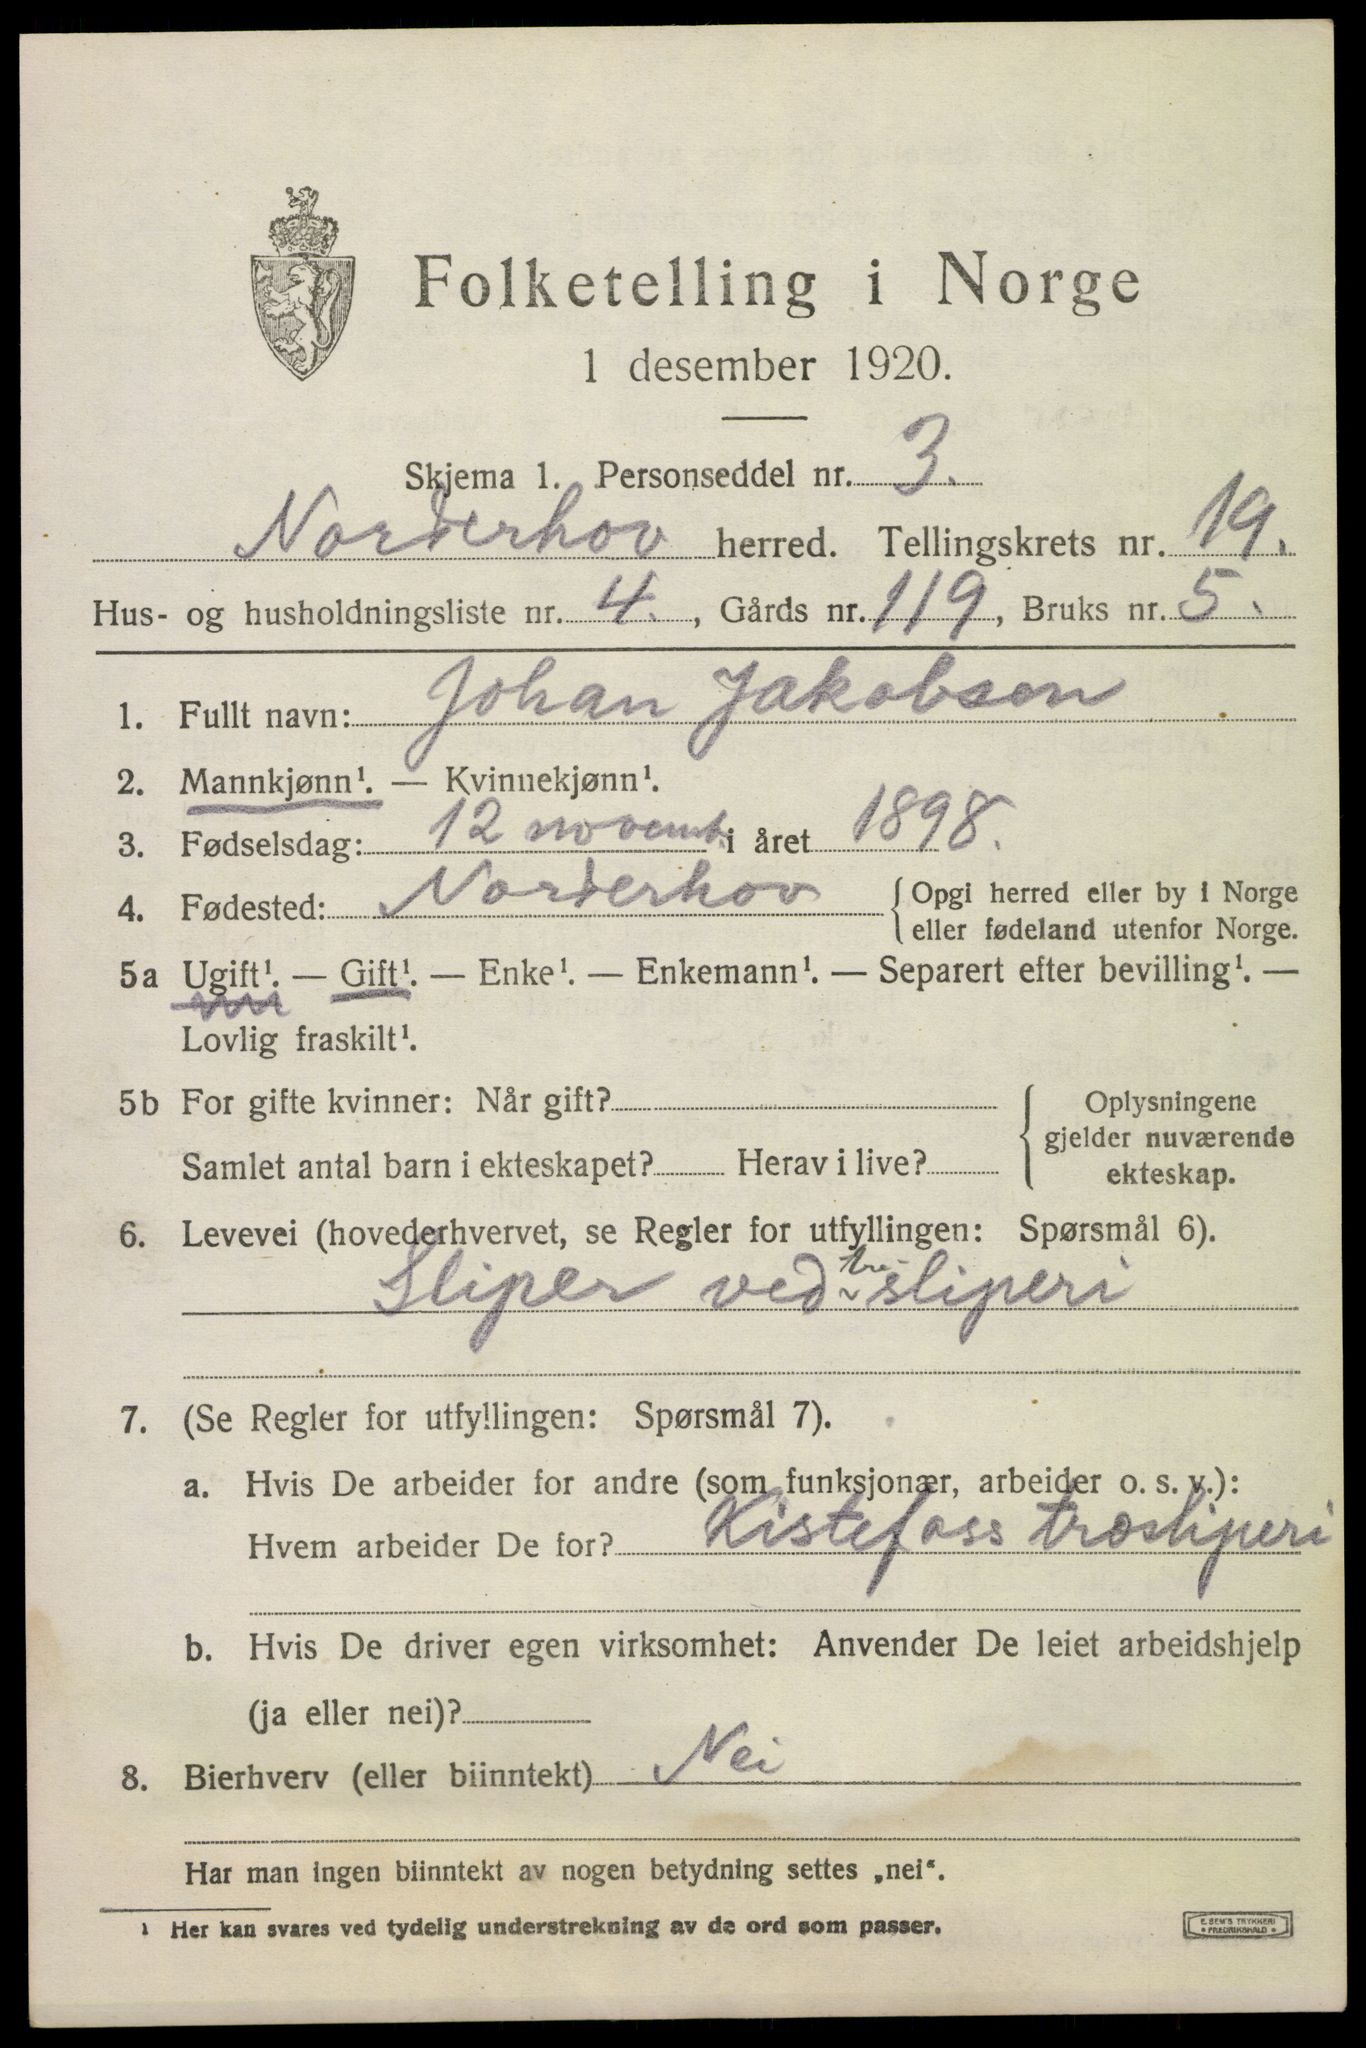 Folketelling i Norge
1 desember 1920.
Skjema 1. Personseddel nr. 3.
Norderhov herred. Tellingskrets nr. 19.
Hus- og husholdningsliste nr. 4. , Gårds nr. 119, Bruks nr. 5.
1. Fullt navn: Johan Jakobsen
2. Mannkjønn¹. — Kvinnekjønn¹.
3. Fødselsdag: 12 novemb. i året 1898.
4. Fødested: Norderhov { Opgi herred eller by i Norge
eller fødeland utenfor Norge.
5a Ugift¹. — Gift¹. — Enke¹. — Enkemann¹. — Separert efter bevilling¹. —
Lovlig fraskilt¹.
5b For gifte kvinner: Når gift? { Oplysningene
gjelder nuværende
Samlet antal barn i ekteskapet? Herav i live? ekteskap.
6. Levevei (hovederhvervet, se Regler for utfyllingen: Spørsmål 6).
Sliper ved tre-sliperi
7. (Se Regler for utfyllingen: Spørsmål 7).
a. Hvis De arbeider for andre (som funksjonær, arbeider o. s. v.):
Hvem arbeider De for? Kistefoss træsliperi
b. Hvis De driver egen virksomhet: Anvender De leiet arbeidshjelp
(ja eller nei)?
8. Bierhverv (eller biinntekt) Nei
Har man ingen biinntekt av nogen betydning settes „nei“.
¹ Her kan svares ved tydelig understrekning av de ord som passer.
E. SEM'S TRYKKERI
• FREDRIKSHALD •